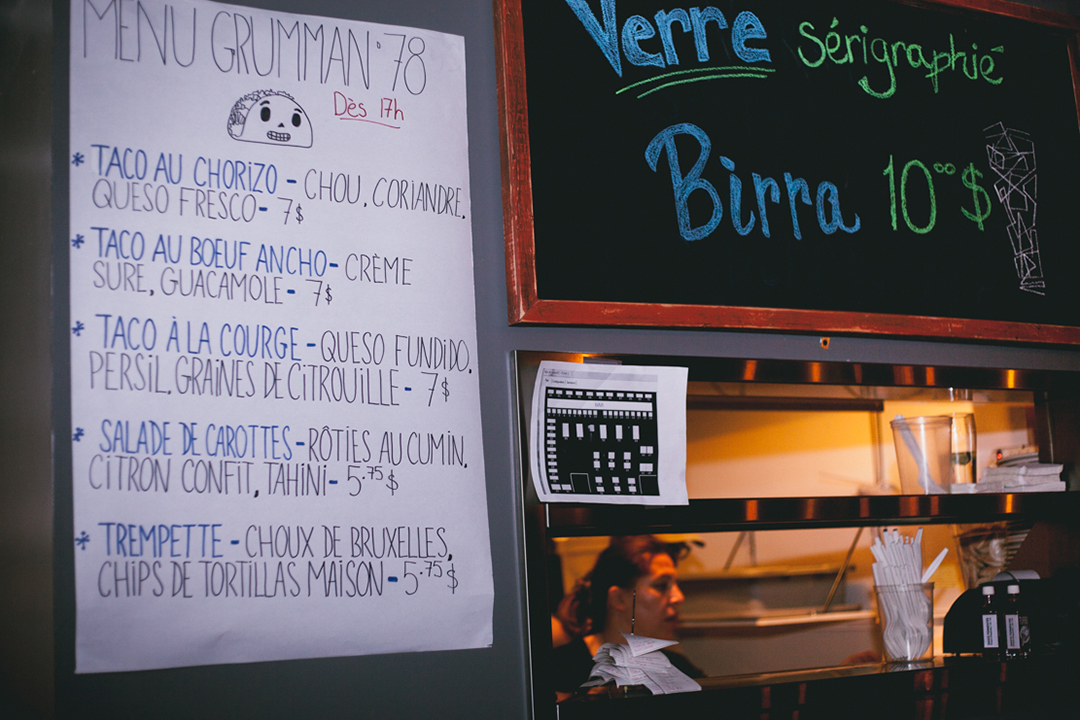 MENU GRUMMAN '78
Dès 17h
* TACO AU CHORIZO - CHOU, CORIANDRE,
QUESO FRESCO - 7$
* TACO AU BOEUF ANCHO - CRÈME
SURE, GUACAMOLE - 7$
* TACO À LA COURGE - QUESO FUNDIDO,
PERSIL, GRAINES DE CITROUILLE - 7$
* SALADE DE CAROTTES - RÔTIES AU CUMIN,
CITRON CONFIT, TAHINI - 5.75$
* TREMPETTE - CHOUX DE BRUXELLES,
CHIPS DE TORTILLAS MAISON - 5.75$
Verre Sérigraphié
Birra 10.00 $